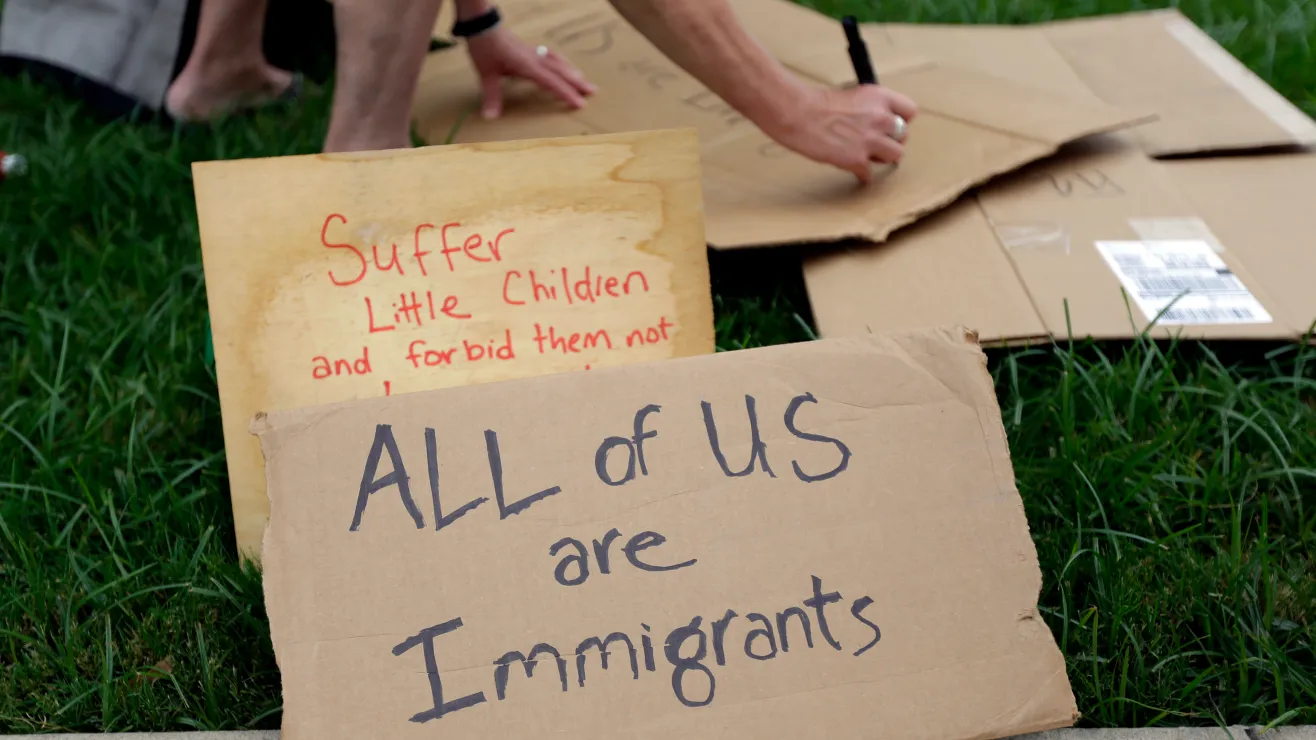 Suffer
Little Children
and forbid them not
ALL of US
are
Immigrants